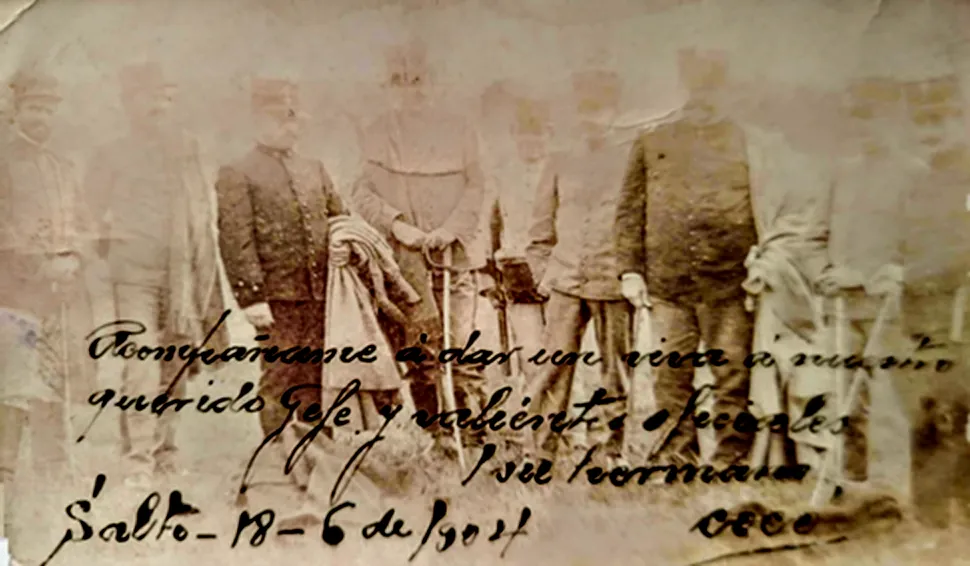 Acompañame à dar un viva á nuestro
querido Gefe y valiéntes oficiales
su hermano
Salto - 18 - 6 de 1904
cece